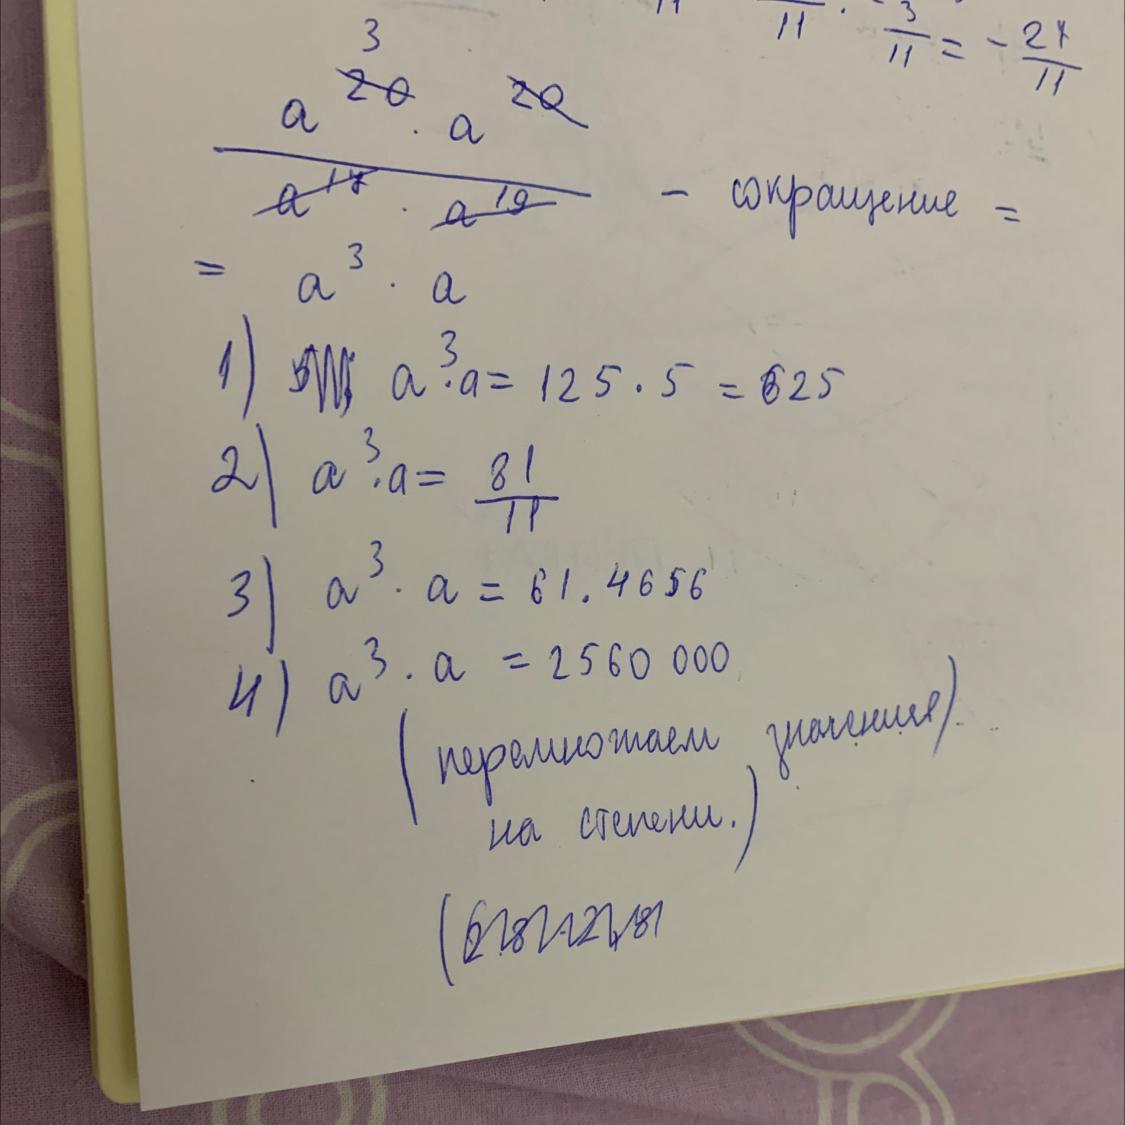 11 11 · 3/11 = - 27/11
3
a^20 · a^20
a^17 · a^19 - сокращение =
= a^3 · a
1) a^3 · a = 125 · 5 = 625
2) a^3 · a = 81/11
3) a^3 · a = 61.4656
4) a^3 · a = 2560 000
(перемножаем значения).
на степени.)